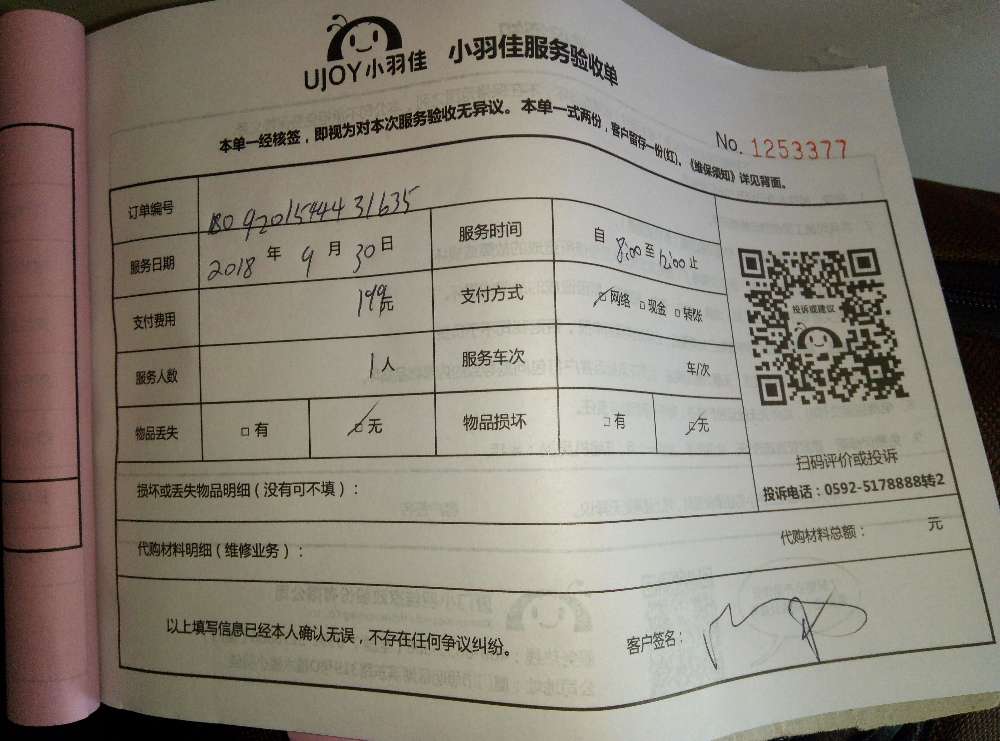 UJOY小羽佳 小羽佳服务验收单
本单一经核签，即视为对本次服务验收无异议。本单一式两份，客户留存一份(红)。《维保须知》详见背面。
No. 1253377
订单编号
服务日期 2018 年 9 月 30 日 服务时间 自 8:00 至 12:00 止
支付费用 199元 支付方式 □网络 □现金 □转账
服务人数 1人 服务车次 车/次
物品丢失 □有 □无 物品损坏 □有 □无
投诉或建议
扫码评价或投诉
投诉电话：0592-5178888转2
损坏或丢失物品明细（没有可不填）：
代购材料明细（维修业务）： 代购材料总额： 元
以上填写信息已经本人确认无误，不存在任何争议纠纷。 客户签名：